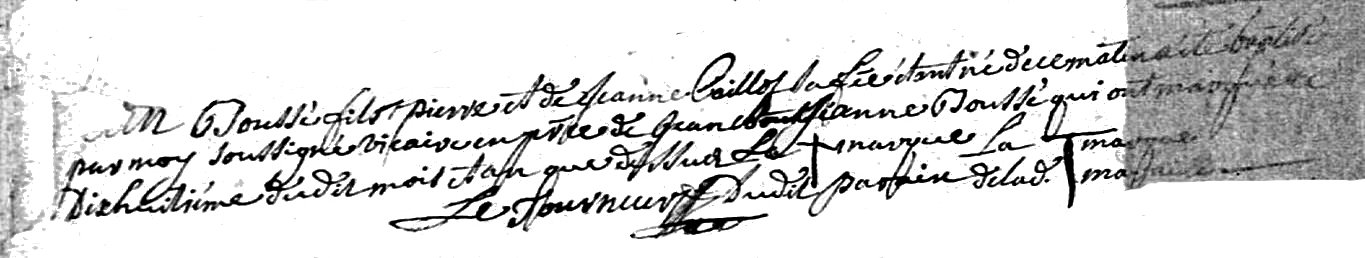 Jean Boussé fils Pierre et de Jeanne Caillot sa fẽe étant né de ce matin a été baptisé
par moy soussigné vicaire en pñce de Jean et Jeanne Boussé qui ont marqué
Dixhuitiéme dudit mois et an que dessus Le † marque La † marque
Le Tourneur Dudit parain de lad. maraine